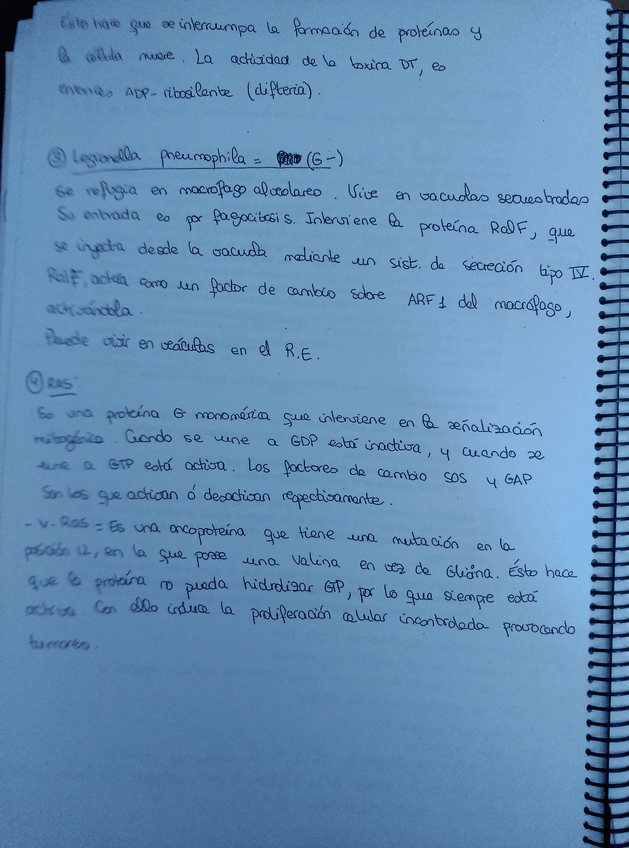 Esto hace que se interrumpa la formación de proteínas y
la célula muere. La actividad de la toxina DT, es
ADP-ribosilante (difteria).
③ Legionella pneumophila = (G-)
Se refugia en macrófago alveolares. Vive en vacuolas secuestradas
Su entrada es por fagocitosis. Interviene la proteína RalF, que
se inyecta desde la vacuola mediante un sist. de secreción tipo IV.
RalF, actúa como un factor de cambio sobre ARF1 del macrófago,
activándola.
Puede vivir en vesículas en el R.E.
④ RAS:
Es una proteína G monomérica que interviene en la señalización
mitogénica. Cuando se une a GDP está inactiva, y cuando se
une a GTP está activa. Los factores de cambio SOS y GAP
Son los que activan ó desactivan respectivamente.
- V-RAS = Es una oncoproteína que tiene una mutación en la
posición 12, en la que posee una Valina en vez de Glicina. Ésto hace
que la proteína no pueda hidrolizar GTP, por lo que siempre está
activa. Con ello induce la proliferación celular incontrolada provocando
tumores.